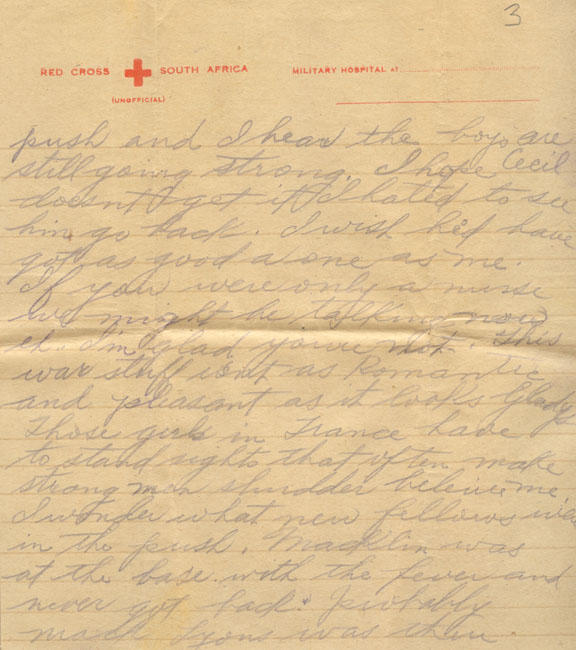 3
RED CROSS SOUTH AFRICA MILITARY HOSPITAL AT
(UNOFFICIAL)
push and I hear the boys are
still going strong. I hope Cecil
doesn't get it. I hated to see
him go back. I wish he'd have
got as good a one as me.
If you were only a nurse
we might be talking now
eh. I'm glad you're not. This
war stuff isn't as Romantic
and pleasant as it looks Gladys
Those girls in France have
to stand sights that often make
strong men shudder beleive me.
I wonder what new fellows were
in the push. Macklin was
at the base with the fever and
never got back. Probably
Lyons was there.